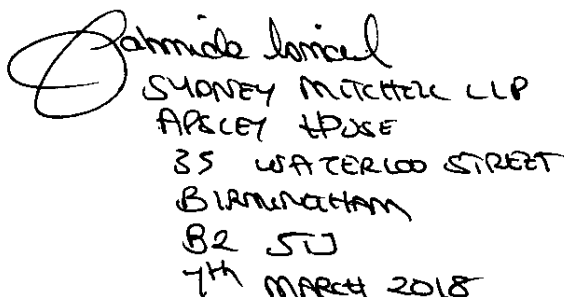 Fahmida Ismail
SYDNEY MITCHELL LLP
APSLEY HOUSE
35 WATERLOO STREET
BIRMINGHAM
B2 5TJ
7th MARCH 2018